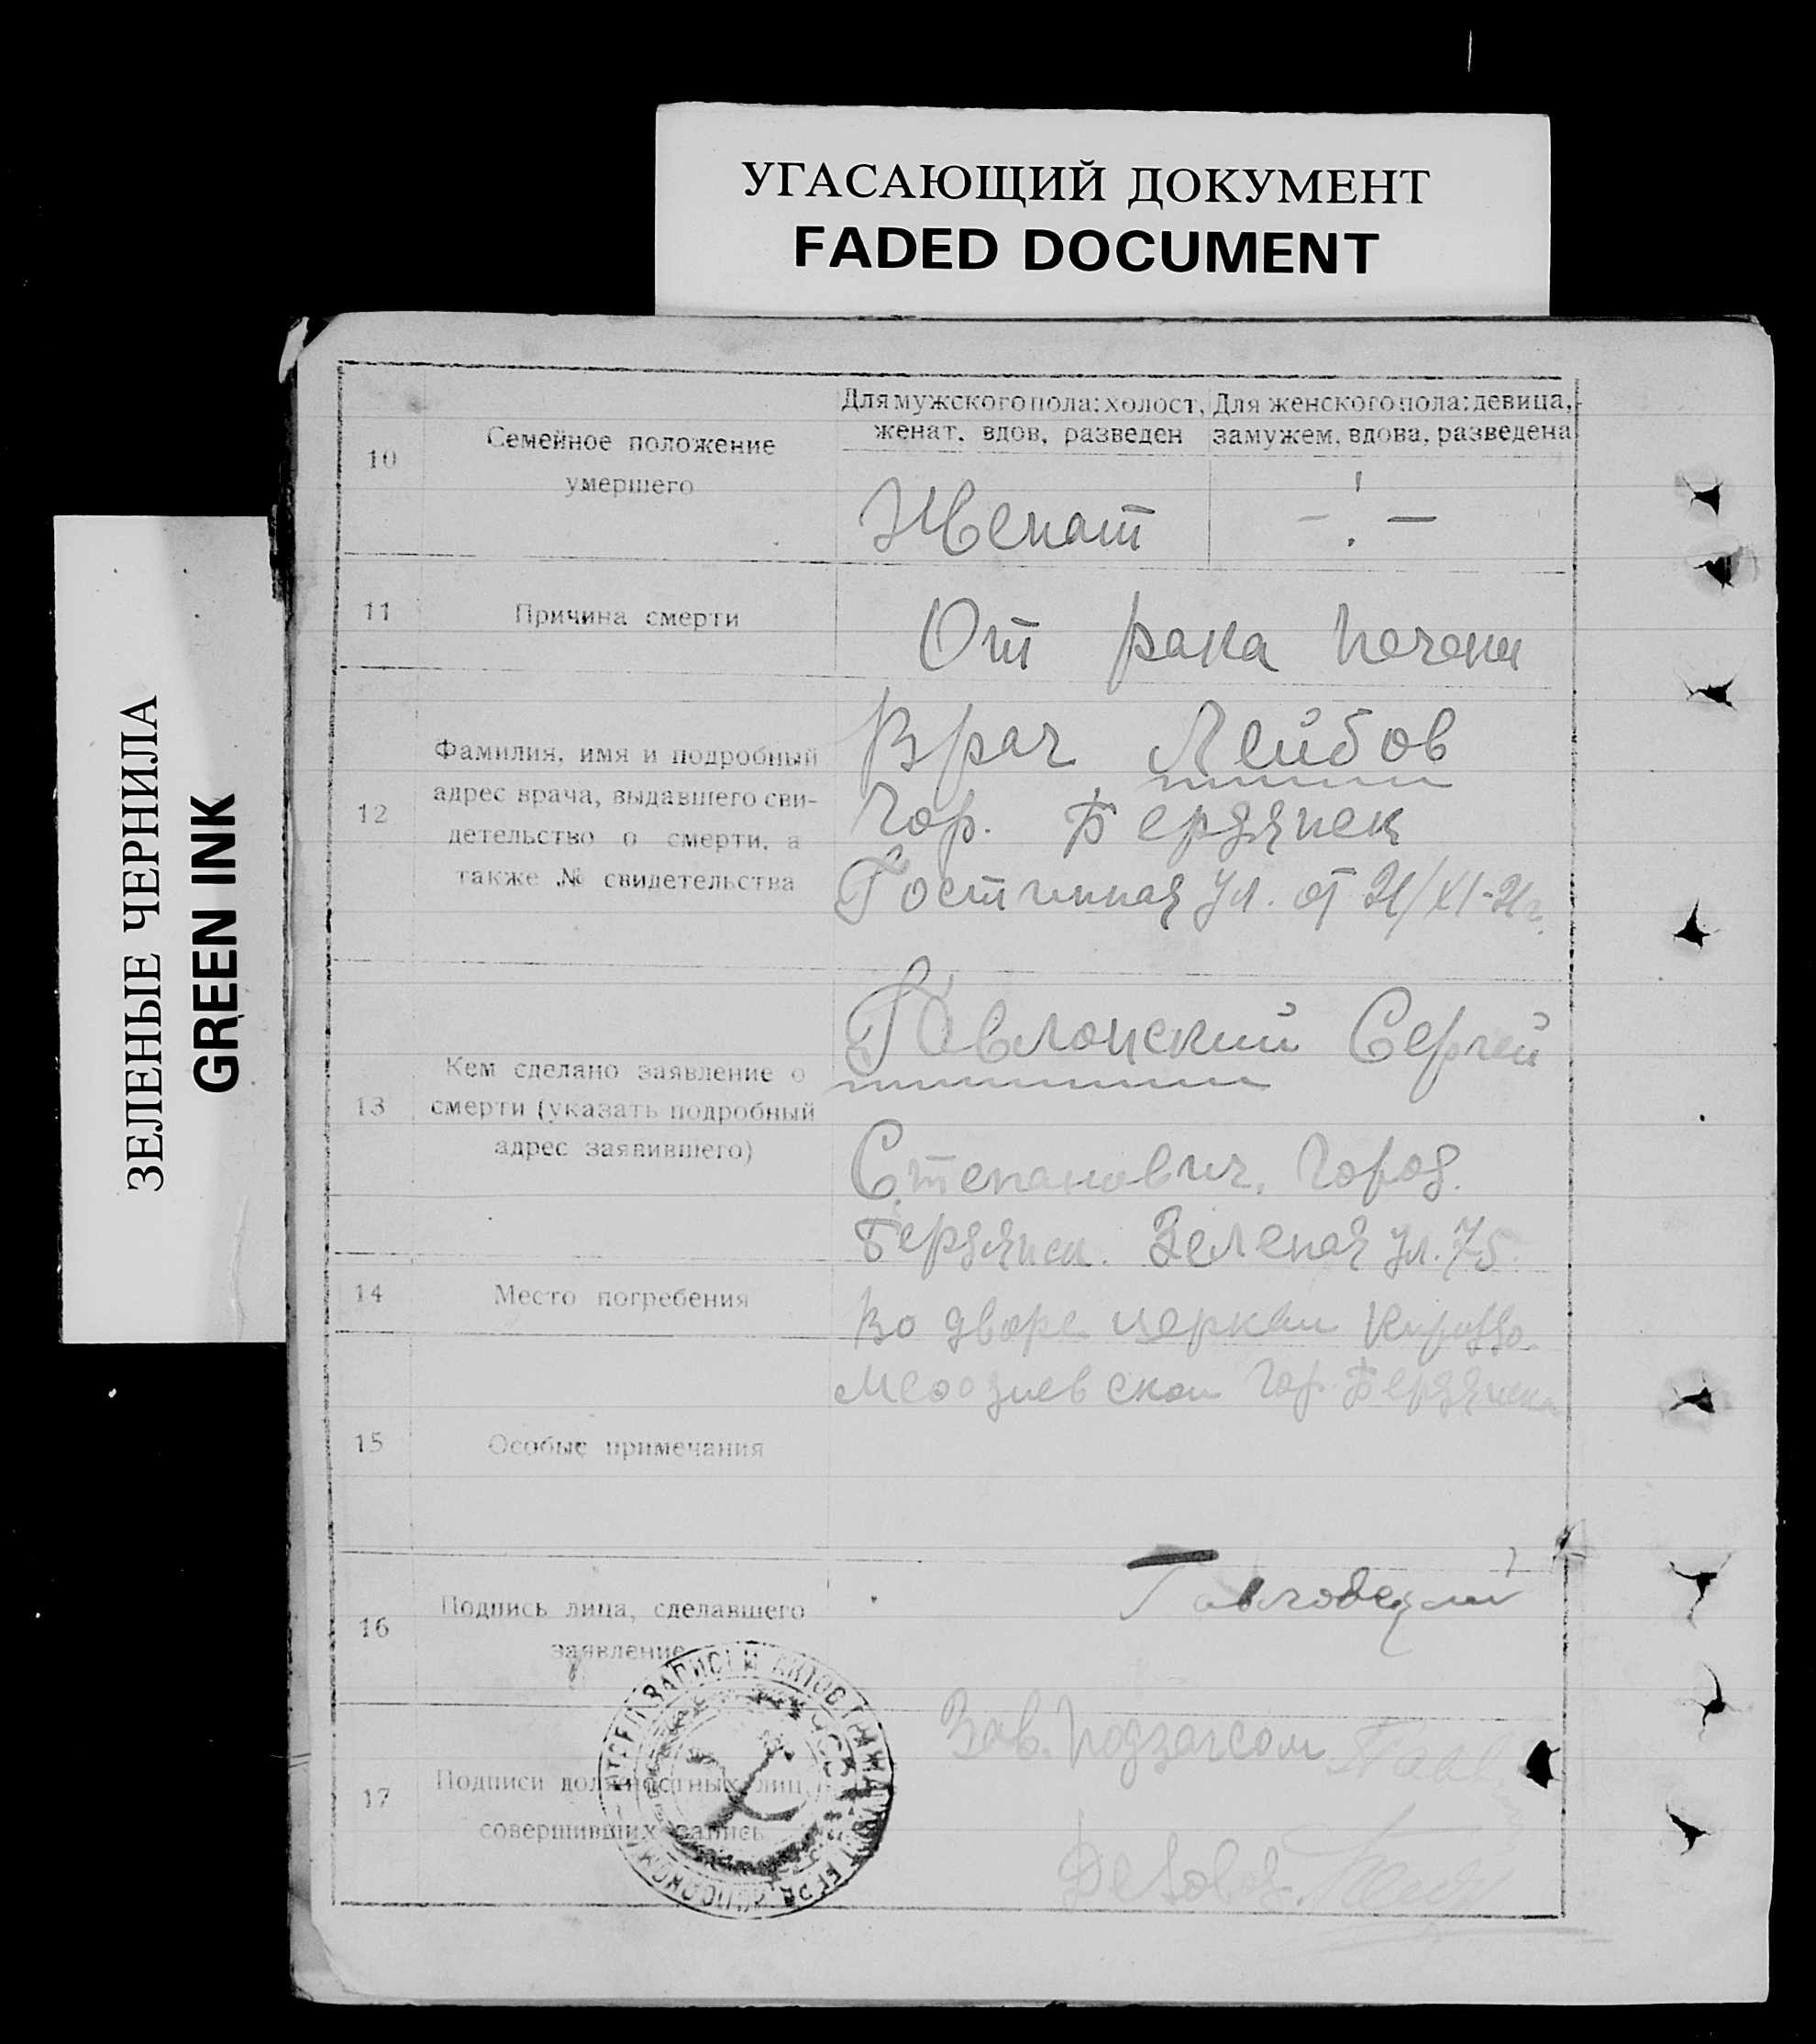 УГАСАЮЩИЙ ДОКУМЕНТ
FADED DOCUMENT
ЗЕЛЕНЫЕ ЧЕРНИЛА
GREEN INK
10
Семейное положение
умершего
Для мужского пола: холост,
женат, вдов, разведен
Для женского пола: девица,
замужем, вдова, разведена
Женат
11
Причина смерти
От рака печени
12
Фамилия, имя и подробный
адрес врача, выдавшего сви-
детельство о смерти, а
также № свидетельства
Врач Лейбов
Гор. Бердянск
Гостинная ул. от 21/XI-21г.
13
Кем сделано заявление о
смерти (указать подробный
адрес заявившего)
Сергей
Степанович, город.
Бердянск. Зеленая ул. 75.
14
Место погребения
Во дворе церкви
гор. Бердянска
15
Особые примечания
16
Подпись лица, сделавшего
заявление
17
Подписи должностных лиц,
совершивших запись
Зав. подзагсом